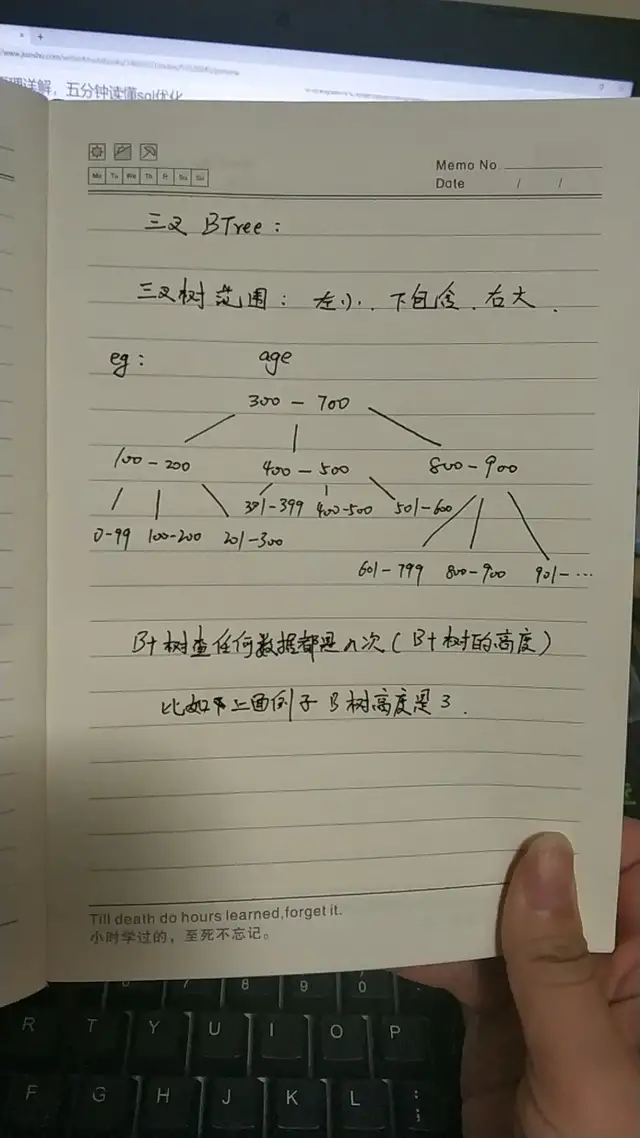 理详解，五分钟读懂sql优化
Memo No.
Mo Tu We Th Fr Sa Su
Date / /
三叉 BTree：
三叉树范围：左小、下包含、右大.
eg： age
300 - 700
100 - 200 400 - 500 800 - 900
301-399 400-500 501-600
0-99 100-200 201-300
601-799 800-900 901-…
B+树查任何数据都是n次（B+树的高度）
比如上面例子B树高度是3.
Till death do hours learned,forget it.
小时学过的，至死不忘记。
7 8 9 0
R T Y U I O P
F G H J K L ; :